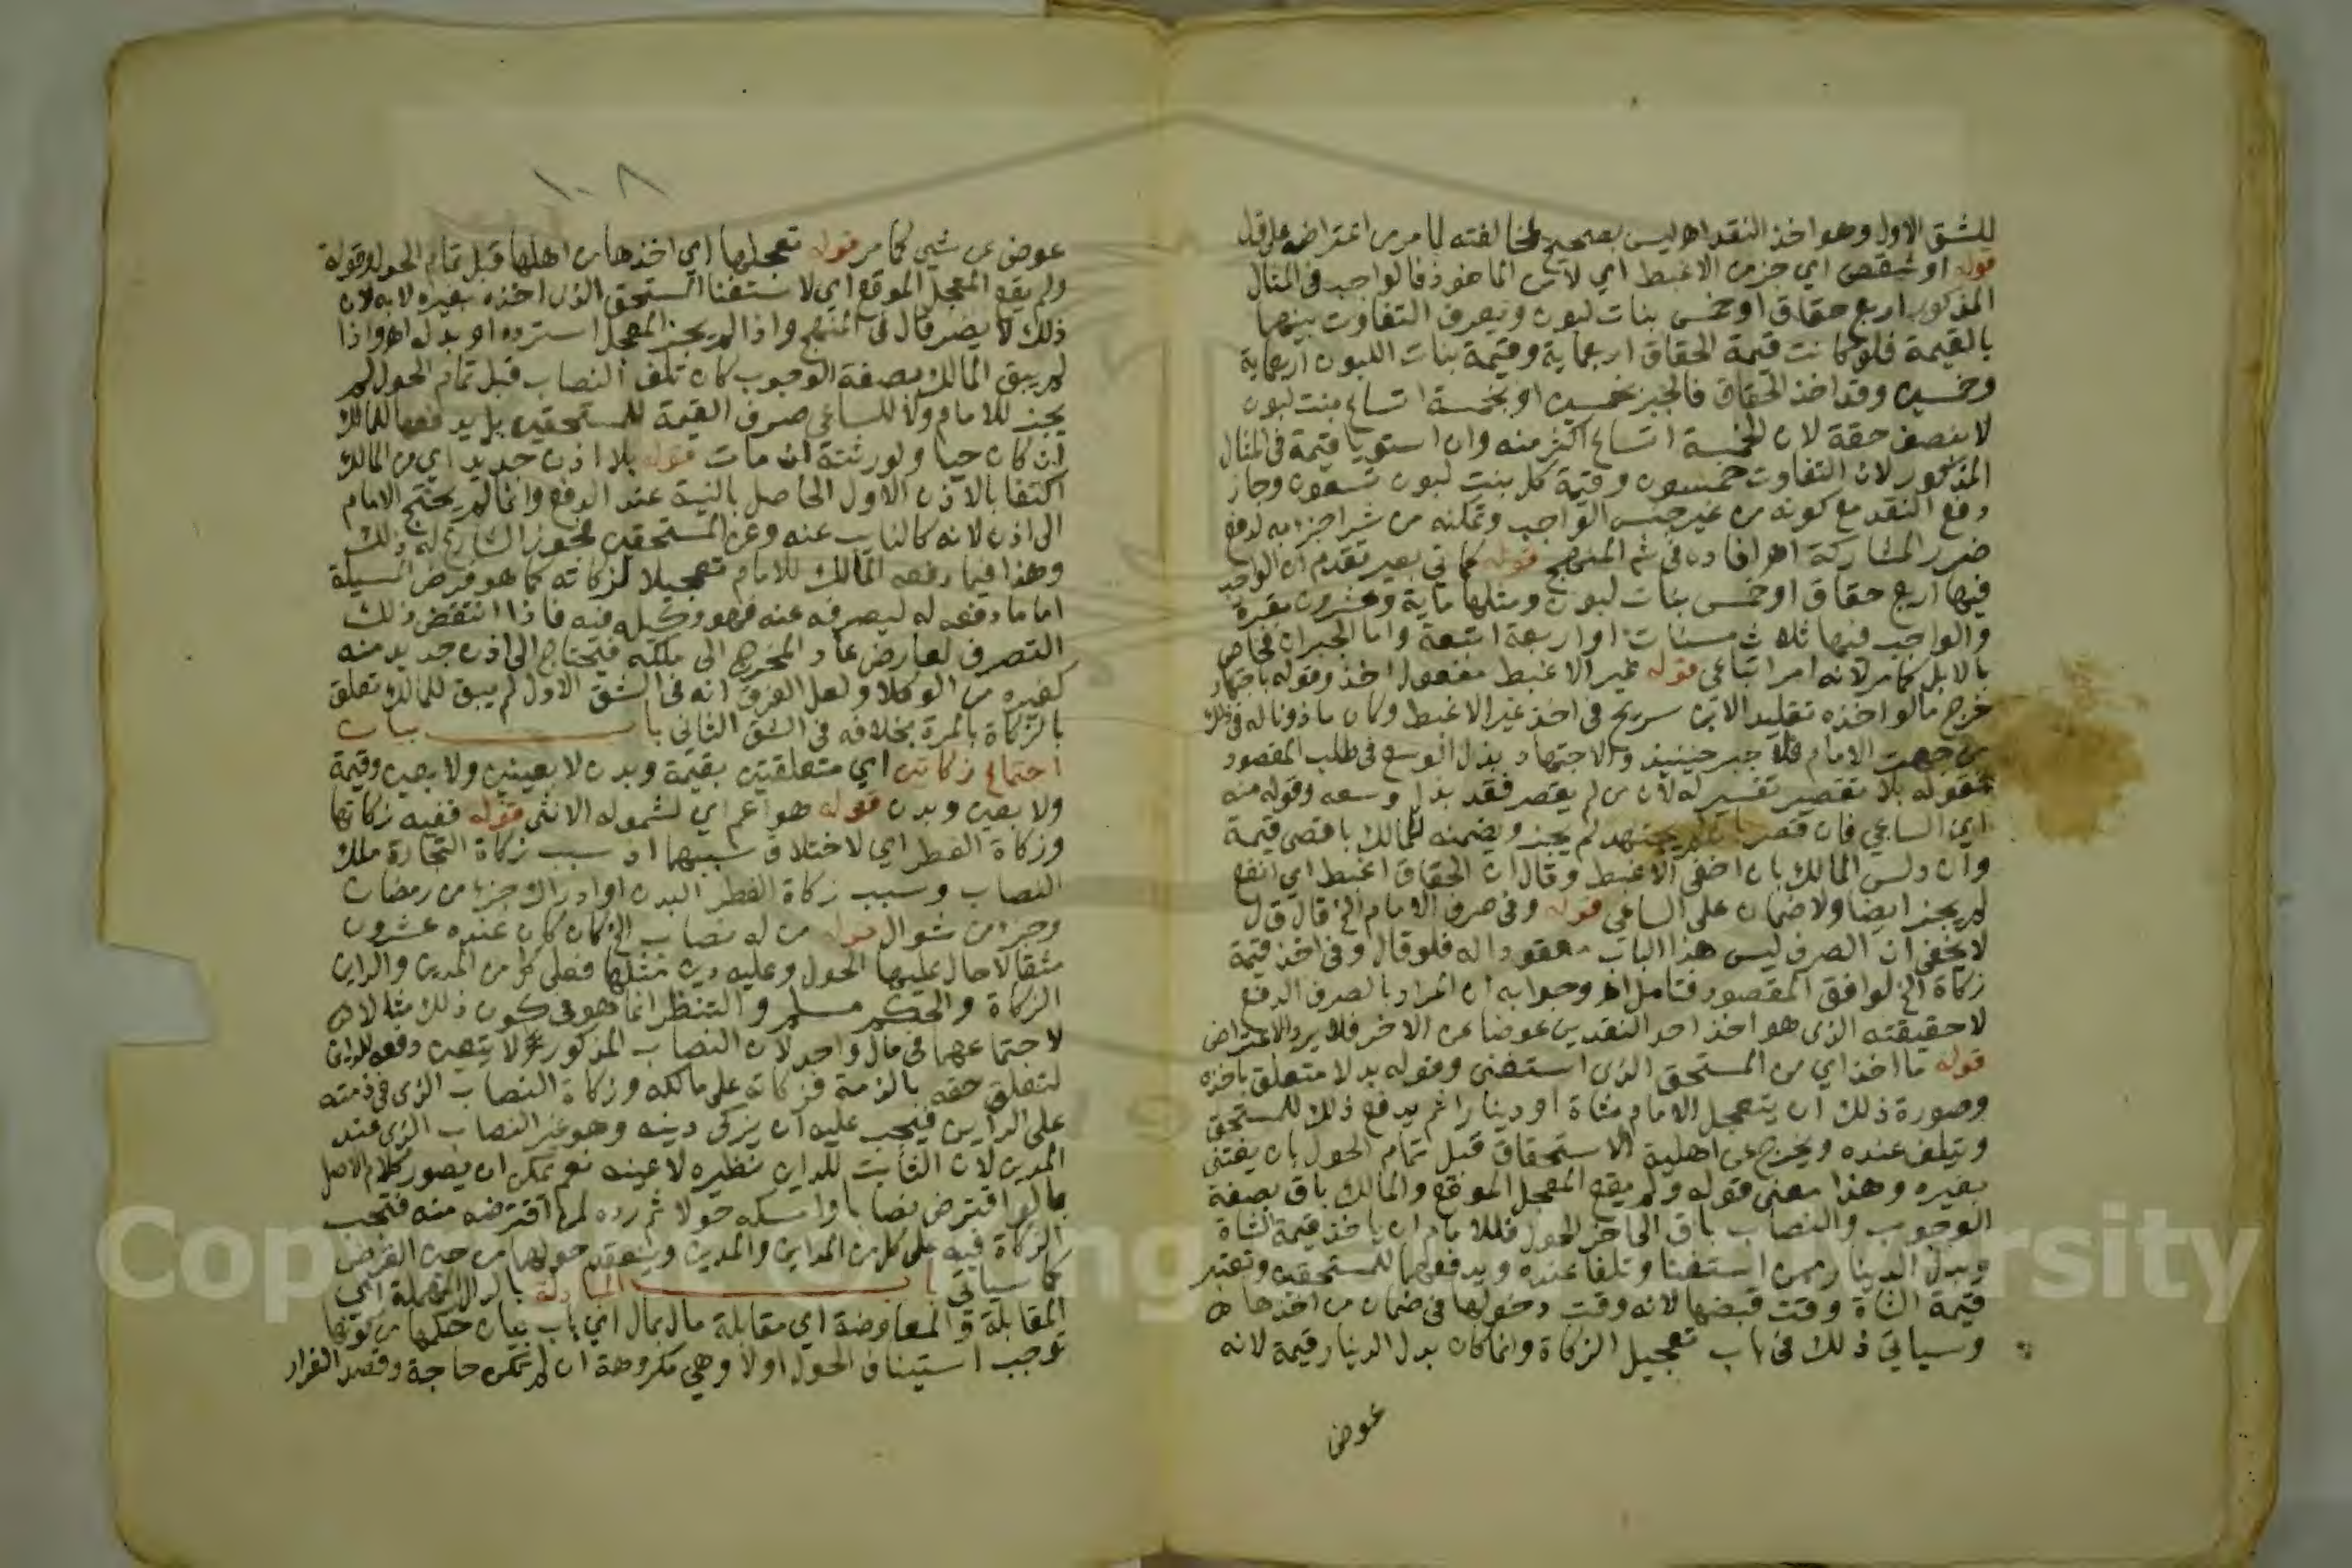 للشق الاول وهو اخذ النقد اهـ ليس بصحيح لمخالفته لما مر من اعتراضه على قل
قوله او شقص اي جزء من الاغبط اي لا من الماخوذ فالواجب في المثال
المذكور اربع حقاق او خمس بنات لبون ويعرف التفاوت بينهما
بالقيمة فلو كانت قيمة الحقاق اربعماية وقيمة بنات اللبون اربعماية
وخمسين وقد اخذ الحقاق فالجبر بخمسين او بخمسة اتساع بنت لبون
لا بنصف حقة لان الخمسة اتساع اكثر منه وان استويا قيمة في المثال
المذكور لان التفاوت خمسون وقيمة كل بنت لبون تسعون وجاز
دفع النقد مع كونه من غير جنس الواجب وتمكنه من شرا جزء به لدفع
ضرر المشاركة اهـ افاده في شم المنهج قوله كماتي بعير تقدم ان الواجب
فيها اربع حقاق او خمس بنات لبون ومثلها ماية وعشرون بقرة
والواجب فيها ثلاث مسنات او اربعة اتبعة واما الجبران فخاص
بالابل كما مر لانه امر اتباعي قوله غير الاغبط مفعول اخذ وقوله باجتهاد
خرج ما لو اخذه تقليدا لابن سريج في اخذ غير الاغبط وكان ماذونا له في ذلك
من جهة الامام فلا جبر حينيذ والاجتهاد بذل الوسع في طلب المقصود
فقوله بلا تقصير تفسير له لان من لم يقصر فقد بذل وسعه وقوله منه
اي من الساعي فان قصر بان لم يجتهد لم يجز ويضمنه للمالك باقصى قيمة
وان دلس المالك بان اخفى الاغبط وقال ان الحقاق اغبط اي انفع
لم يجز ايضا ولا ضمان على الساعي قوله وفي صرف الامام الخ قال ق ل
لا يخفى ان الصرف ليس هذا الباب معقودا له فلو قال وفي اخذ قيمة
زكاة الخ لوافق المقصود فتامل اهـ وجوابه ان المراد بالصرف الدفع
لا حقيقته الذي هو اخذ احد النقدين عوضا عن الاخر فلا يرد الاعتراض
قوله ما اخذ اي من المستحق الذي استغنى وقوله بدلا متعلق باخذه
وصورة ذلك ان يتعجل الامام شاة او دينارا ثم يدفع ذلك للمستحق
وتتلف عنده ويخرج عن اهلية الاستحقاق قبل تمام الحول بان يغتني
بغيره وهذا معنى قوله ولم يقع المعجل الموقع والمالك باق بصفة
الوجوب والنصاب باق الى اخر الحول فللامام ان ياخذ قيمة الشاة
وبدل الدينار ممن استغنا وتلفا عنده ويدفعهما للمستحقين وتعتبر
قيمة الشاة وقت قبضها لانه وقت دخولها في ضمان من اخذها
وسياتي ذلك في باب تعجيل الزكاة وانما كان بدل الدينار قيمة لانه
عوض
١٠٨
عوض عن شي كما مر قوله تعجلها اي اخذها من اهلها قبل تمام الحول وقوله
ولم يقع المعجل الموقع اي لاستغنا المستحق الذي اخذه بغيره لا به لان
ذلك لا يضر قال في المنهج واذا لم يجز المعجل استرده او بدله اهـ واذا
لم يبق المالك بصفة الوجوب كان تلف النصاب قبل تمام الحول لم
يجز للامام ولا للساعي صرف القيمة للمستحقين بل يدفعها للمالك
ان كان حيا ولورثته ان مات قوله بلا اذن جديد اي من المالك
اكتفا بالاذن الاول الحاصل بالنية عند الدفع وانما لم يحتج الامام
الى اذن لانه كالنايب عنه وعن المستحقين فجوز الشارع له ذلك
وهذا فيما دفعه المالك للامام تعجيلا لزكاته كما هو فرض المسيلة
اما ما دفعه له ليصرفه عنه فهو وكيله فيه فاذا انتقض ذلك
التصرف لعارض عاد المخرج الى ملكه فتحتاج الى اذن جديد منه
كغيره من الوكلا ولعل الفرق انه في الشق الاول لم يبق للمالك تعلق
بالزكاة بالمرة بخلافه في الشق الثاني باب بيان
اجتماع زكاتين اي متعلقتين بقيمة وبدن لا بعينين ولا بعين وقيمة
ولا بعين وبدن قوله هو اعم اي لشموله الانثى قوله ففيه زكاتها
وزكاة الفطر اي لاختلاف سببهما اذ سبب زكاة التجارة ملك
النصاب وسبب زكاة الفطر البدن او ادراك جزء من رمضان
وجزء من شوال قوله من له نصاب الخ كان كان عنده عشرون
مثقالا حال عليها الحول وعليه دين مثلها فعلى كل من المدين والداين
الزكاة والحكم مسلم والتنظر انما هو في كون ذلك مثالا
لاجتماعهما في مال واحد لان النصاب المذكور لا يتعين دفعه للداين
لتعلق حقه بالذمة فزكاته على مالكه وزكاة النصاب الذي في ذمته
على الداين فيجب عليه ان يزكي دينه وهو غير النصاب الذي عند
المدين لان الثابت للداين نظيره لا عينه نعم يمكن ان يصور كلام الاصل
بما لو اقترض نصابا وامسكه حولا ثم رده لمن اقترضه منه فتجب
الزكاة فيه على كل من الداين والمدين وينعقد حولهما من حين القرض
كما سياتي باب المبادلة بالدال المهملة اي
المقابلة والمعاوضة اي مقابلة مال بمال اي باب بيان حكمها من كونها
توجب استيناف الحول اولا وهي مكروهة ان لم تكن حاجة وقصد الفرار